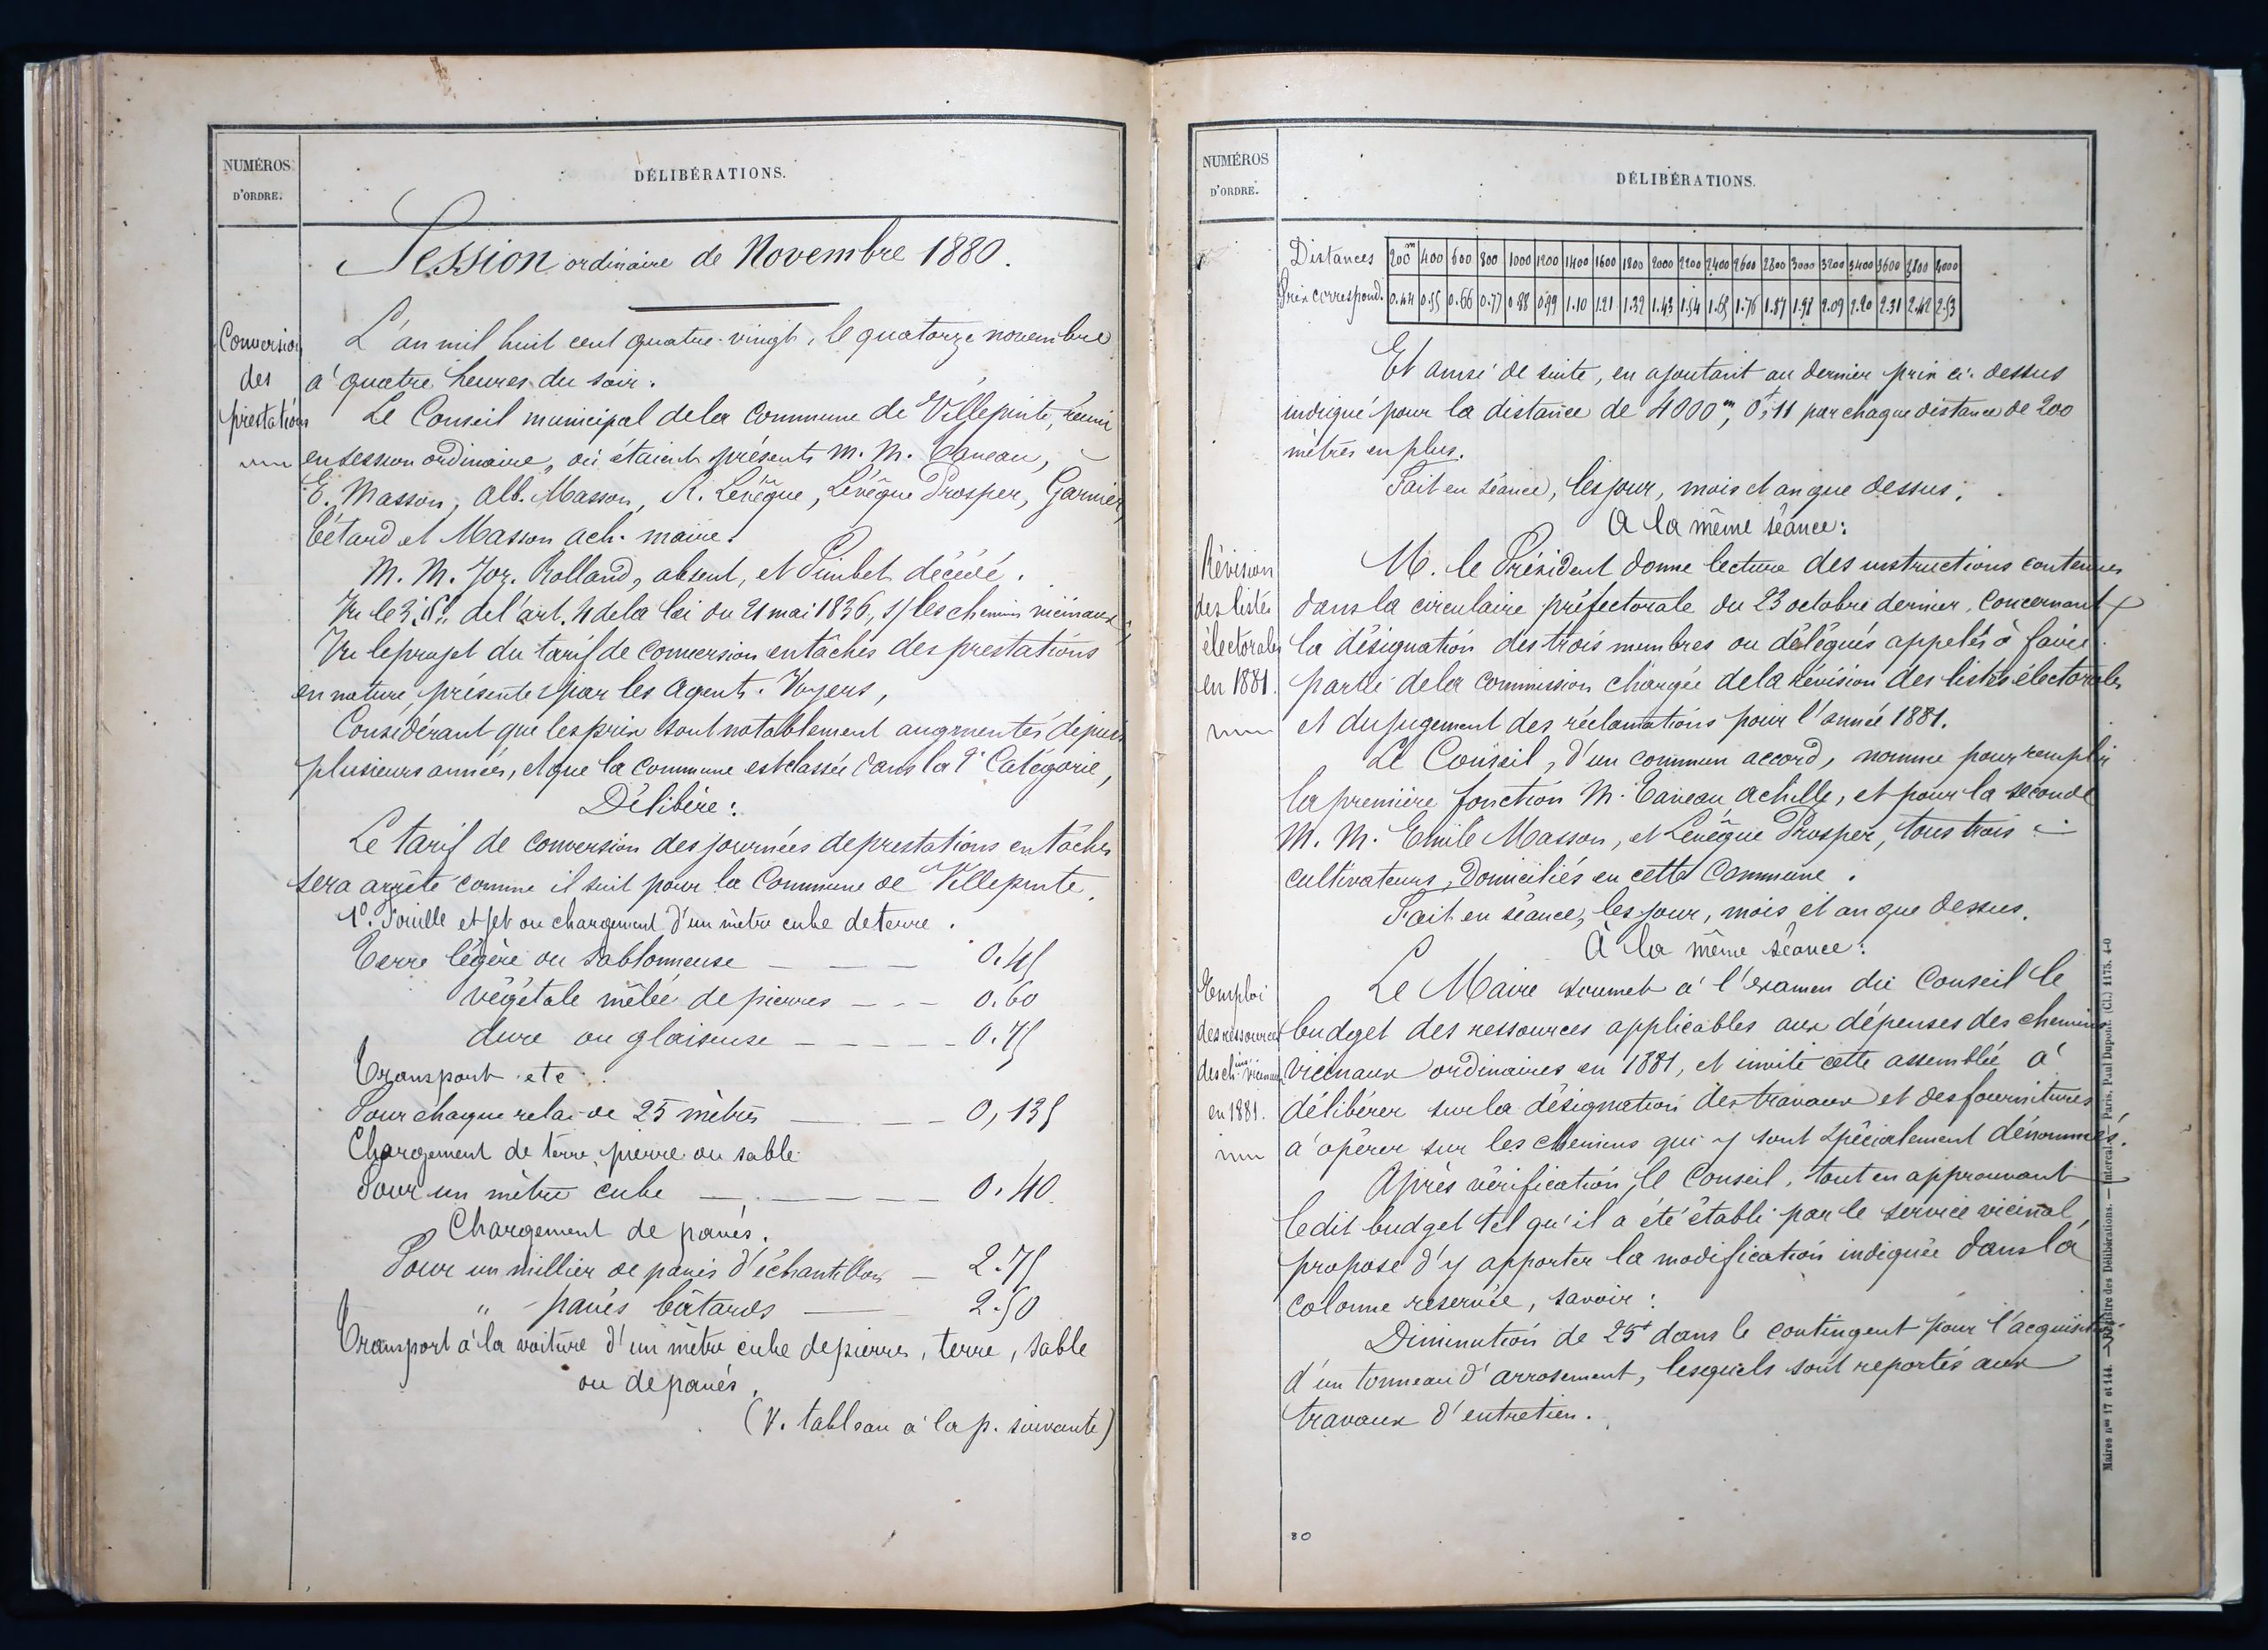 NUMÉROS
D'ORDRE.
DÉLIBÉRATIONS.
Session ordinaire de Novembre 1880.
Conversion
des
prestations
L'an mil huit cent quatre-vingt, le quatorze novembre
à quatre heures du soir.
Le Conseil municipal de la Commune de Villepinte, réuni
en session ordinaire, où étaient présents M. M. Caneau,
E. Masson, Alb. Masson, A. Levêque, Levêque Prosper, Garnier,
Bétard et Masson ach. maire.
M. M. Jos. Rolland, absent, et Pimbet décédé.
Vu le 3e §. de l'art. 4 de la loi du 21 mai 1836, s/ les chemins vicinaux
Vu le projet du tarif de conversion en tâches des prestations
en nature, présenté par les Agents-Voyers,
Considérant que les prix sont notablement augmentés depuis
plusieurs années, et que la commune est classée dans la 2e Catégorie,
Délibère :
Le tarif de conversion des journées de prestations en tâches
sera arrêté comme il suit pour la Commune de Villepinte.
1o. Fouille et jet ou chargement d'un mètre cube de terre.
Terre légère ou sablonneuse — — — 0.45
végétale mêlée de pierres — — — 0.60
dure ou glaiseuse — — — — — 0.75
Transport etc.
Pour chaque relai de 25 mètres — — — 0,135
Chargement de terre, pierre ou sable
Pour un mètre cube — — — — — 0.40
Chargement de pavés.
Pour un millier de pavés d'échantillon — 2.75
" pavés bâtards — 2.50
Transport à la voiture d'un mètre cube de pierres, terre, sable
ou de pavés,
(V. tableau à la p. suivante)
NUMÉROS
D'ORDRE.
DÉLIBÉRATIONS.
Distances 200m 400 600 800 1000 1200 1400 1600 1800 2000 2200 2400 2600 2800 3000 3200 3400 3600 3800 4000
Prix correspond. 0.44 0.55 0.66 0.77 0.88 0.99 1.10 1.21 1.32 1.43 1.54 1.65 1.76 1.87 1.98 2.09 2.20 2.31 2.42 2.53
Et ainsi de suite, en ajoutant au dernier prix ci-dessus
indiqué pour la distance de 4000m, 0f,11 par chaque distance de 200
mètres en plus.
Fait en séance, les jour, mois et an que dessus.
A la même séance :
Révision
des listes
électorales
en 1881.
M. le Président donne lecture des instructions contenues
dans la circulaire préfectorale du 23 octobre dernier, concernant
la désignation des trois membres ou délégués appelés à faire
partie de la commission chargée de la révision des listes électorales
et du jugement des réclamations pour l'année 1881.
Le Conseil, d'un commun accord, nomme pour remplir
la première fonction M. Caneau Achille, et pour la seconde
M. M. Emile Masson, et Levêque Prosper, tous trois
cultivateurs, domiciliés en cette Commune.
Fait en séance, les jour, mois et an que dessus.
À la même séance :
Emploi
des ressources
des chins vicinaux
en 1881.
Le Maire soumet à l'examen du Conseil le
budget des ressources applicables aux dépenses des chemins
vicinaux ordinaires en 1881, et invite cette assemblée à
délibérer sur la désignation des travaux et des fournitures
à opérer sur les chemins qui y sont spécialement dénommés.
Après vérification, le Conseil, tout en approuvant
ledit budget tel qu'il a été établi par le service vicinal,
propose d'y apporter la modification indiquée dans la
colonne réservée, savoir :
Diminution de 25f dans le contingent pour l'acquisition
d'un tonneau d'arrosement, lesquels sont reportés aux
travaux d'entretien.
80
Maires nos 17 et 144. — Registre des Délibérations. — Intercal. — Paris, Paul Dupont. (Cl.) 1175. 4-0